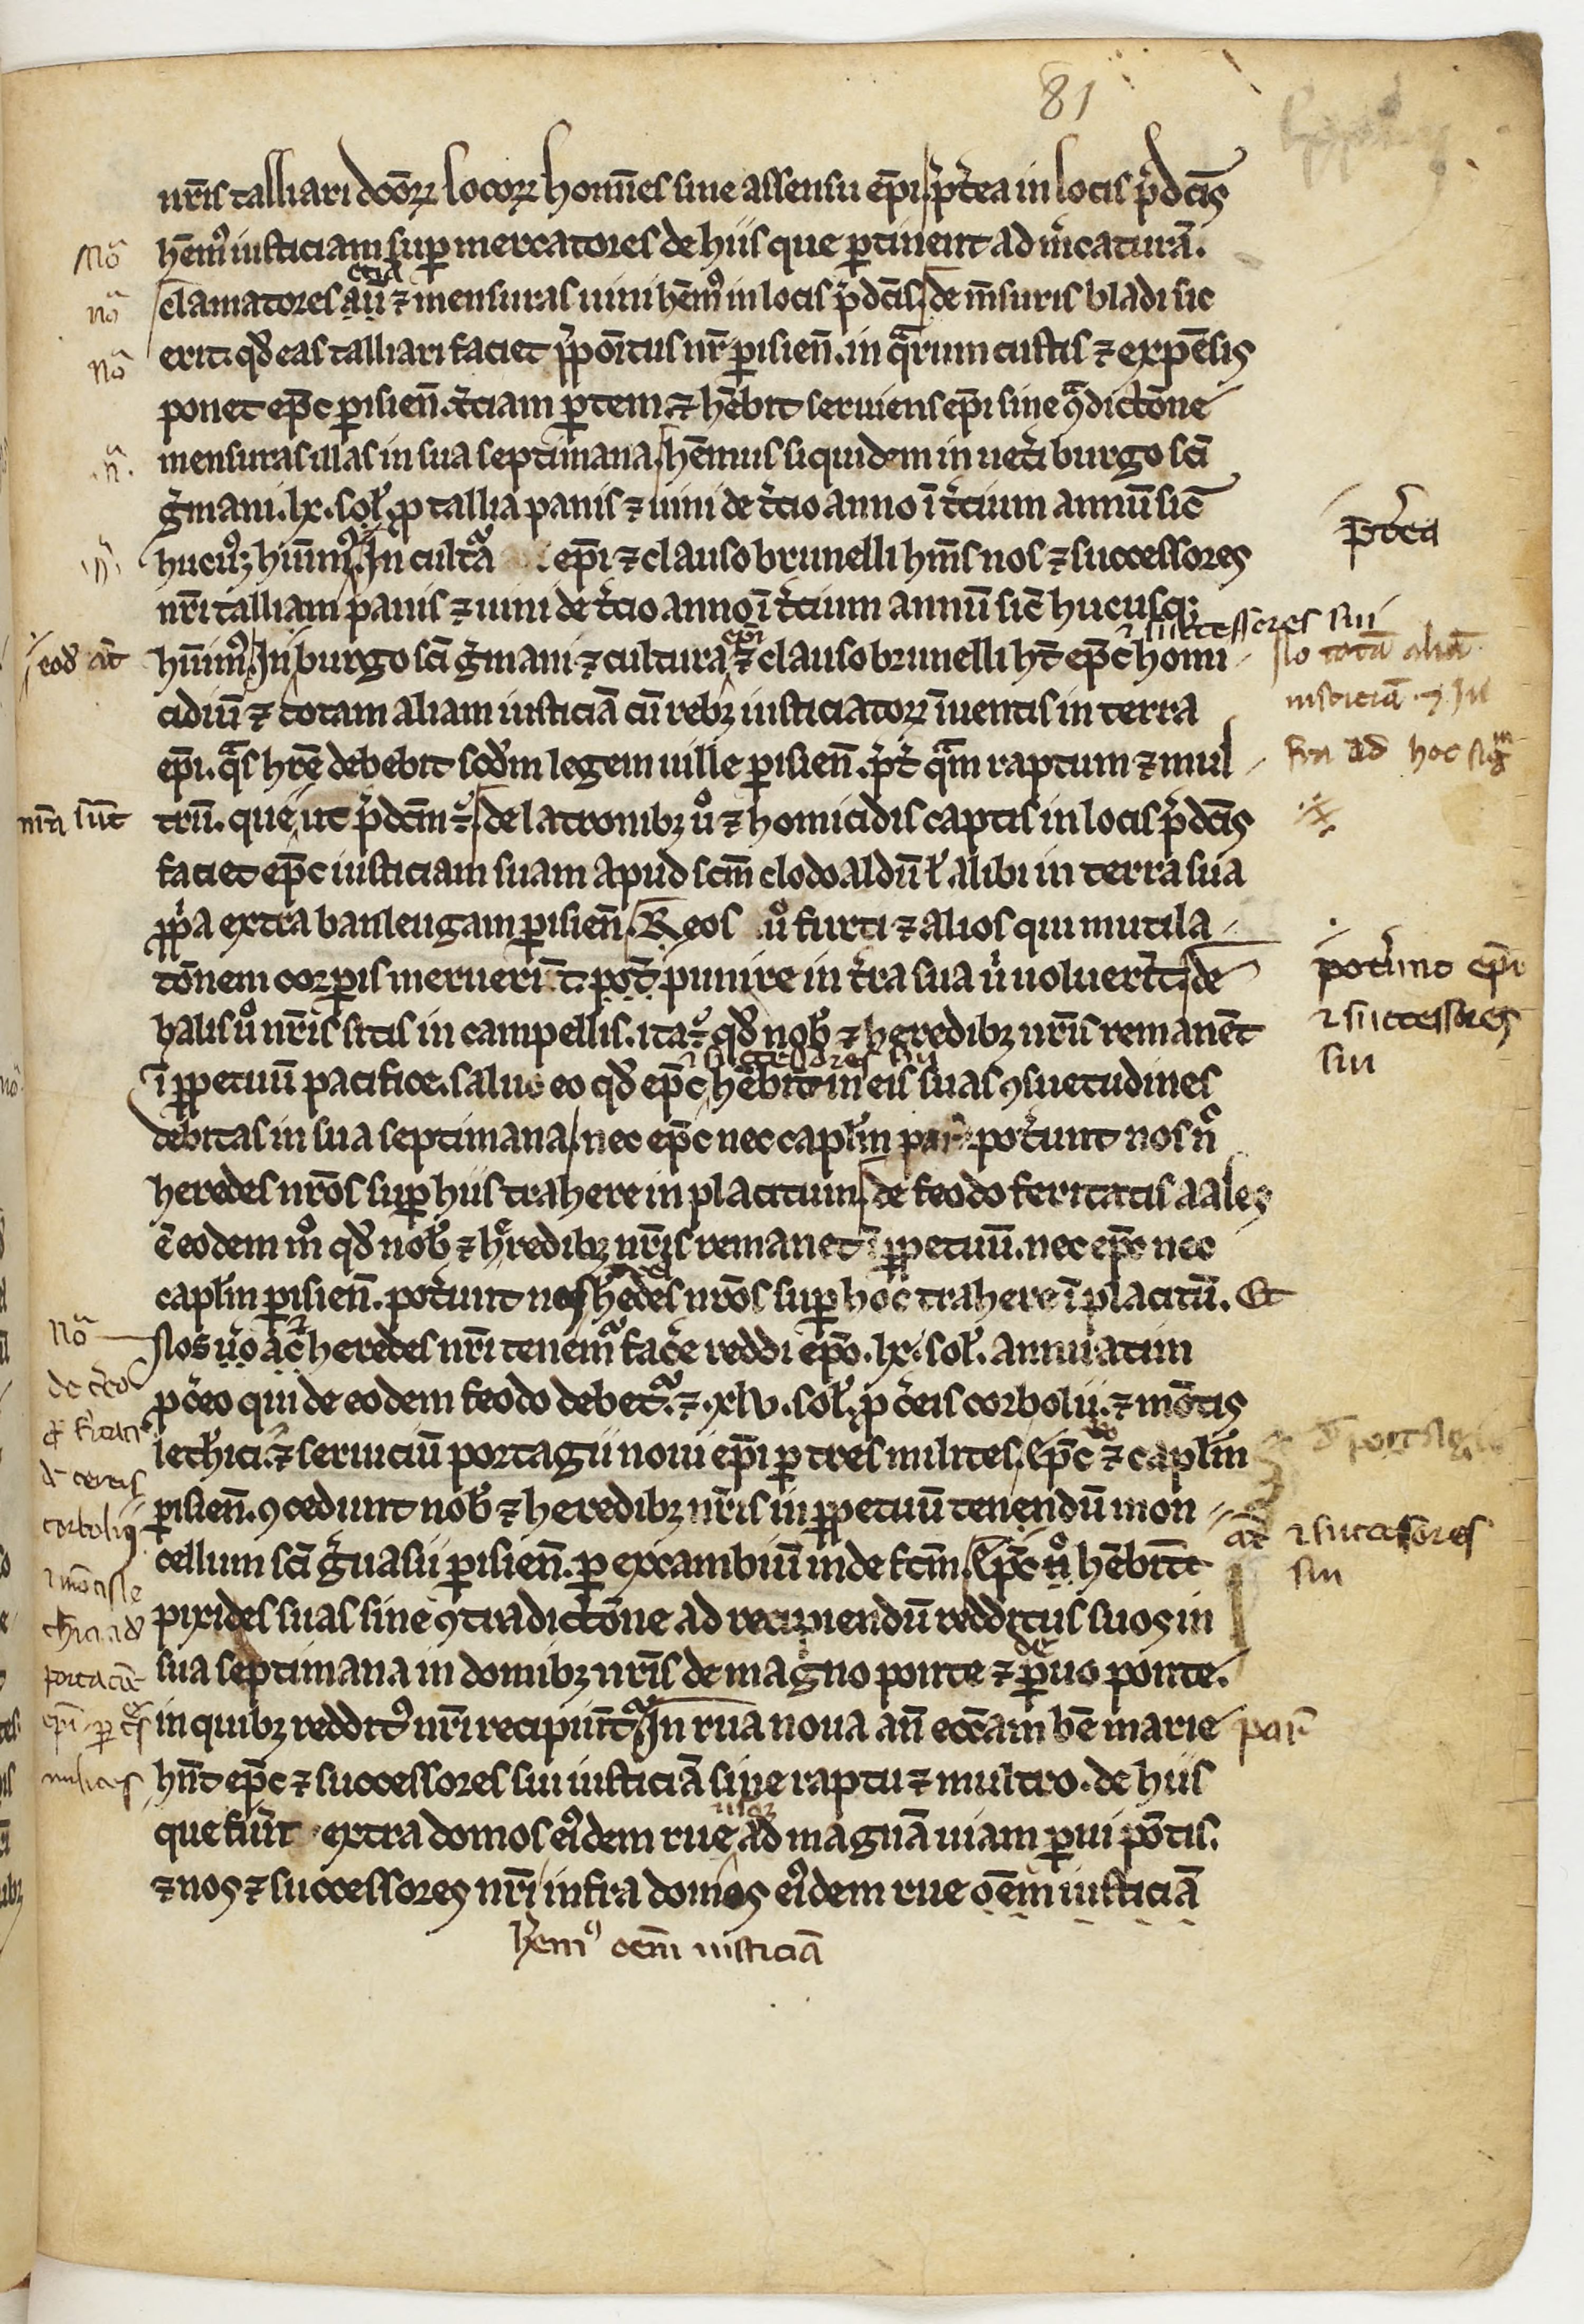 81
nr̄is talliari dc̄oꝝ locoꝝ homīes sine assensu ep̄i. p̄t̾ea in locis p̾dc̄is
hēmꝰ iusticiam suꝑ mercatores de hiis que ꝑtinent ad m̾caturā.
etiā
clamatores aū ⁊ mensuras uini hēmꝰ in locis p̾dc̄is. de m̄suris bladi sic
erit. qd̾ eas talliari faciet p̾poītus nr̄ ꝑisien̄. in quarum custis ⁊ expēsis
ponet ep̄c ꝑisien̄. t̾ciam ꝑtem. ⁊ hēbit seruiens ep̄i sine ꝯ̾dictōne
mensuras illas in sua septimana. hēmus siquidem in uet̾i burgo sc̄i
g̾mani. lx. sol̾. ꝓ tallia panis ⁊ uini de t̾cio anno ī t̾cium annū sic̄
hucusqꝫ hūimꝰ. In cult̾a ep̄i ⁊ clauso brunelli hm̄s nos ⁊ successores
nr̄i talliam panis ⁊ uini de t̾cio anno ī t̾cium annū sic̄ hucusqꝫ
ep̄i ⁊ successores sui
hūimꝰ. In burgo sc̄i g̾mani ⁊ cultura ⁊ clauso brunelli ht̄ ep̄c homi
cidiū ⁊ totam aliam iusticiā cū rebꝫ iusticiatoꝝ īuentis in terra
ep̄i. quas hr̄e debebit scd̾m legem uille ꝑisien̄. p̾t̾ quam raptum ⁊ mul
trū. que ut p̾dc̄m ÷ de latronibꝫ u̾o ⁊ homicidis captis in locis p̾dc̄is
faciet ep̄c iusticiam suam apud sc̄m clodoaldū l̾ alibi in terra sua
ꝓp̾a extra banleugam ꝑisien̄. Reos u̾o furti ⁊ alios qui mutila
tōnem corꝑis meruerīt. pot̾ punire in t̾ra sua u̾ uoluerīt. de
halis u̾o nr̄is sitis in campellis. ita ÷ qd̾ nob̾ ⁊ heredibꝫ nr̄is remanēt
⁊ successores sui
ī ꝑpetuū pacifice. saluo eo qd̾ ep̄c hēbit in eis suas ꝯsuetudines
debitas in sua septimana. nec ep̄c nec capl̾m par̄ pot̾unt nos n̄
heredes nr̄os suꝑ hiis trahere in placitum. de feodo feritatis aales
ē eodem mo qd̾ nob̾ ⁊ h̾redibꝫ nr̄is remanet ī ꝑpetuū. nec ep̄c nec
capl̾m ꝑisien̄. pot̾unt nos hedes nr̄os suꝑ hoc trahere ī placitū. Et
Nos u̾o ac̄ heredes nr̄i tenemur fac̾e reddi ep̄o. lx. sol̾. annuatim
ꝓ c̾eo qui de eodem feodo debetur. ⁊ xlv. sol̾. ꝓ c̾eis corbolii. ⁊ mōtis
leth̾ici. ⁊ seruiciū portagii noui ep̄i ꝑ tres milites. Ep̄c ⁊ capl̾m
ꝑisien̄. ꝯcedunt nob̾ ⁊ heredibꝫ nr̄is in ꝑpetuū tenendū mon
cellum sc̄i g̾uasii ꝑisien̄. ꝑ excambiū inde fc̄m. Ep̄c u̾o hēbīt
pixides suas sine ꝯtradictōne ad recipiendū redditus suos in
de
sua septimana in domibꝫ nr̄is de magno ponte ⁊ ꝑuo ponte.
in quibꝫ redditꝰ nr̄i recipiūtur. In rua noua an̄ ecc̄am bē marie
hn̄t ep̄c ⁊ successores sui iusticiā sine raptu ⁊ multro. de hiis
usqꝫ
que fiūt extra domos ei̾dem rue ad magnā uiam ꝑui pōtis.
⁊ nos ⁊ successores nr̄i infra domos ei̾dem rue oēm iusticiā
hēmꝰ oēm iusticiā
Nō
nō
Nō
n̄
n̄
eod̾ at̄
nr̄a sūt
Nō
de c̾eo
de c̾eis
corbolii
⁊ mōtis le
th̾ici ad
portacōe
ep̄i ꝑ t̾s
milites
p̄t̾ea
totā aliā
iusticiā ⁊ In
fra ad hoc sig̾m
pot̾unt ep̄i
⁊ successores
sui
de portagio
at̄ ⁊ successores
sui
par̄